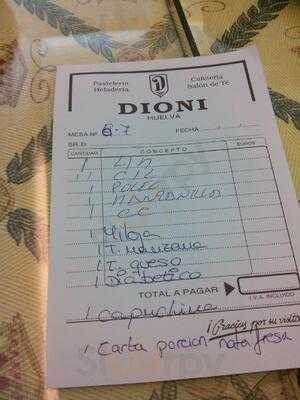 Pastelería Cafetería
Heladería Salón de Té
DIONI
HUELVA
MESA Nº 8-7 FECHA
SR.D.
CANTIDAD CONCEPTO EUROS
1
1 CIL
1 POLEO
1 MANZANILLA
1 CC
1 Miloja
1 T. manzana
1 T. queso
1 Diabetico
TOTAL A PAGAR
I.V.A. INCLUIDO
1 Capuchino
¡Gracias por su visita!
1 Carta porcion nata fresa